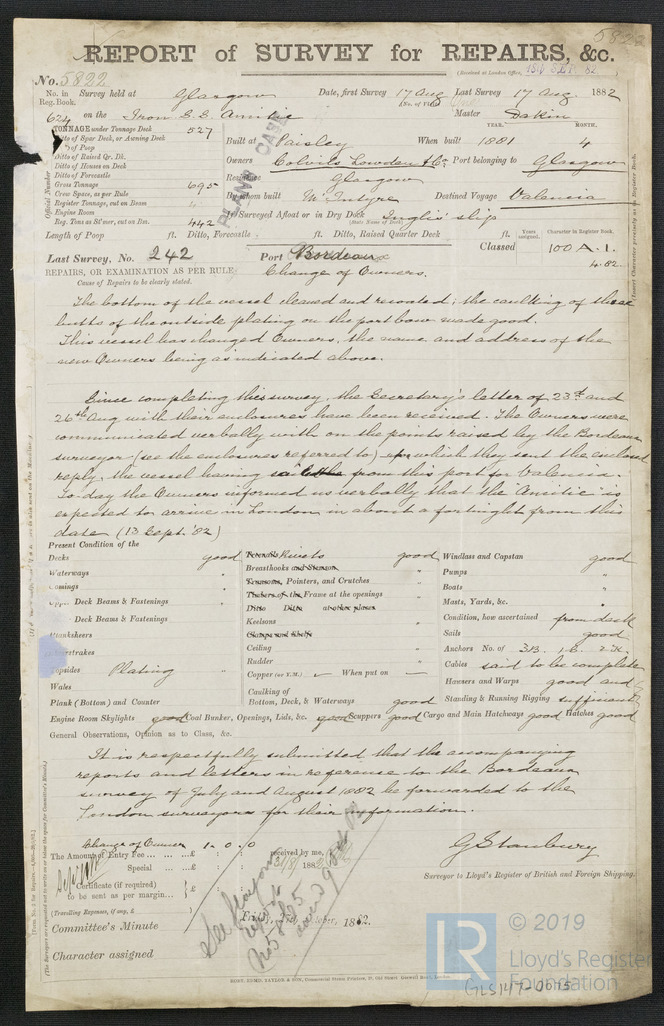 5822
REPORT of SURVEY for REPAIRS, &c.
(Received at London Office,
No. 5822
No. in Survey held at Glasgow Date, first Survey 17 Aug Last Survey 17 Aug 1882
Reg. Book.
624 on the Iron S.S. Amitie Master Dakin
TONNAGE under Tonnage Deck 527
YEAR. MONTH.
Built at Paisley When built 1881 4
Ditto of Spar Deck, or Awning Deck
Ditto of Poop
Ditto of Raised Qr. Dk.
Ditto of Houses on Deck
Ditto of Forecastle
Owners Colvils Lowden & Co. Port belonging to Glasgow
Gross Tonnage 695
Residence Glasgow
Crew Space, as per Rule
Register Tonnage, cut on Beam
Engine Room
Reg. Tons as St'mer, cut on Bm. 442
By whom built McIntyre Destined Voyage Valencia
If Surveyed Afloat or in Dry Dock Inglis' slip
Official Number
Length of Poop ft. Ditto, Forecastle ft. Ditto, Raised Quarter Deck ft.
Classed Years assigned. Character in Register Book.
100 A. 1.
4.82
Last Survey, No. 242 Port Bordeaux
REPAIRS, OR EXAMINATION AS PER RULE; Change of Owners.
Cause of Repairs to be clearly stated.
The bottom of the vessel cleaned and recoated; the caulking of three
butts of the outside plating on the port bow made good.
This vessel has changed Owners, the name and address of the
new Owners being as indicated above.
Since completing this survey, the Secretary's letter of 23rd and
26th Aug with their enclosures have been received. The Owners were
communicated verbally with on the points raised by the Bordeaux
surveyor (see the enclosures referred to) which they sent the enclosed
reply, the vessel having from this port for Valencia.
To-day the Owners informed us verbally that the "Amitie" is
expected to arrive in London in about a fortnight from this
date (13 Sept. '82)
Present Condition of the
Decks good
Waterways "
Comings "
Upper Deck Beams & Fastenings "
Deck Beams & Fastenings
Planksheers
Sheerstrakes
Topsides Plating "
Wales
Plank (Bottom) and Counter
Treenails Rivets good
Breasthooks and Stemson "
Transoms, Pointers, and Crutches "
Timbers of the Frame at the openings "
Ditto Ditto at other places
Keelsons "
Clamps and Shelfs
Ceiling "
Rudder "
Copper (or Y.M.) When put on
Caulking of
Bottom, Deck, & Waterways good
Windlass and Capstan good
Pumps "
Boats "
Masts, Yards, &c. "
Condition, how ascertained from deck
Sails good
Anchors No. of 3B. 1S. 2K.
Cables said to be complete
Hawsers and Warps good and
Standing & Running Rigging sufficient
Engine Room Skylights good Coal Bunker, Openings, Lids, &c. good Scuppers good Cargo and Main Hatchways good Hatches good
General Observations, Opinion as to Class, &c.
It is respectfully submitted that the accompanying
reports and letters in reference to the Bordeaux
survey of July and August 1882 be forwarded to the
London surveyors for their information.
Change of Owner 1. 0. 0
The Amount of Entry Fee ... ... ...£ : : received by me,
Special ... ...£ : : 188
Certificate (if required)
to be sent as per margin... }£ : :
(Travelling Expenses, if any, £ )
G Stanbury
Surveyor to Lloyd's Register of British and Foreign Shipping.
Committee's Minute 1882.
Character assigned
© 2019
LR
Lloyd's Register
Foundation
GLS147-0075